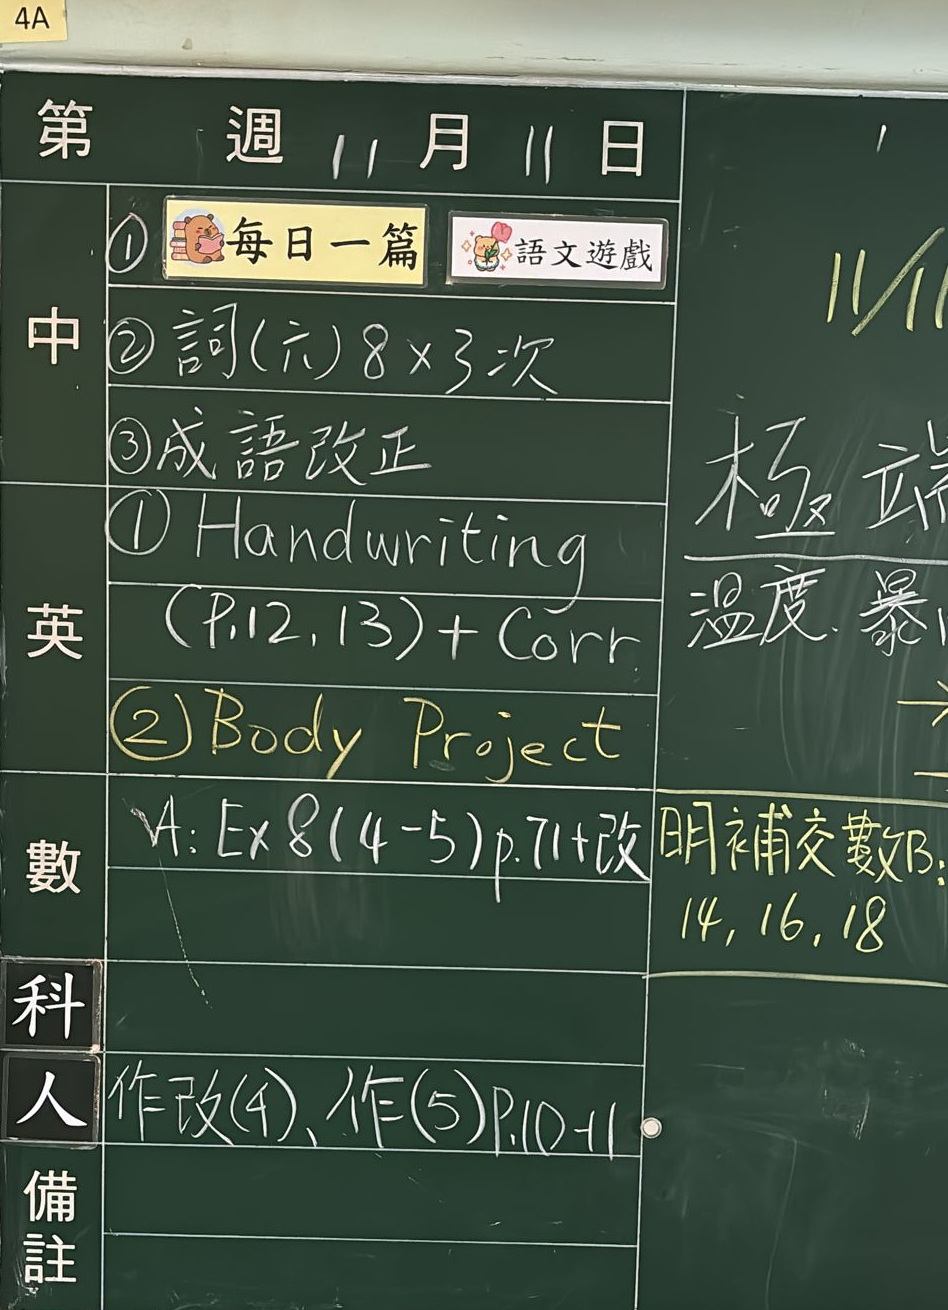 4A
第 週 11 月 11 日
中
① 每日一篇 語文遊戲
② 詞(六)8×3次
③成語改正
英
① Handwriting
(P.12, 13) + Corr.
② Body Project
數
A: Ex 8(4-5) p.71+改
科
人
作改(4)、作(5)P.10-11
備註
極端
溫度. 暴
明補交數B:
14, 16, 18